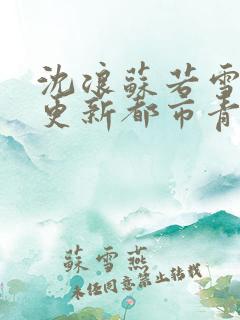 沈浪蘇若雪
更新都市青
蘇雪燕
未經同意禁止轉載